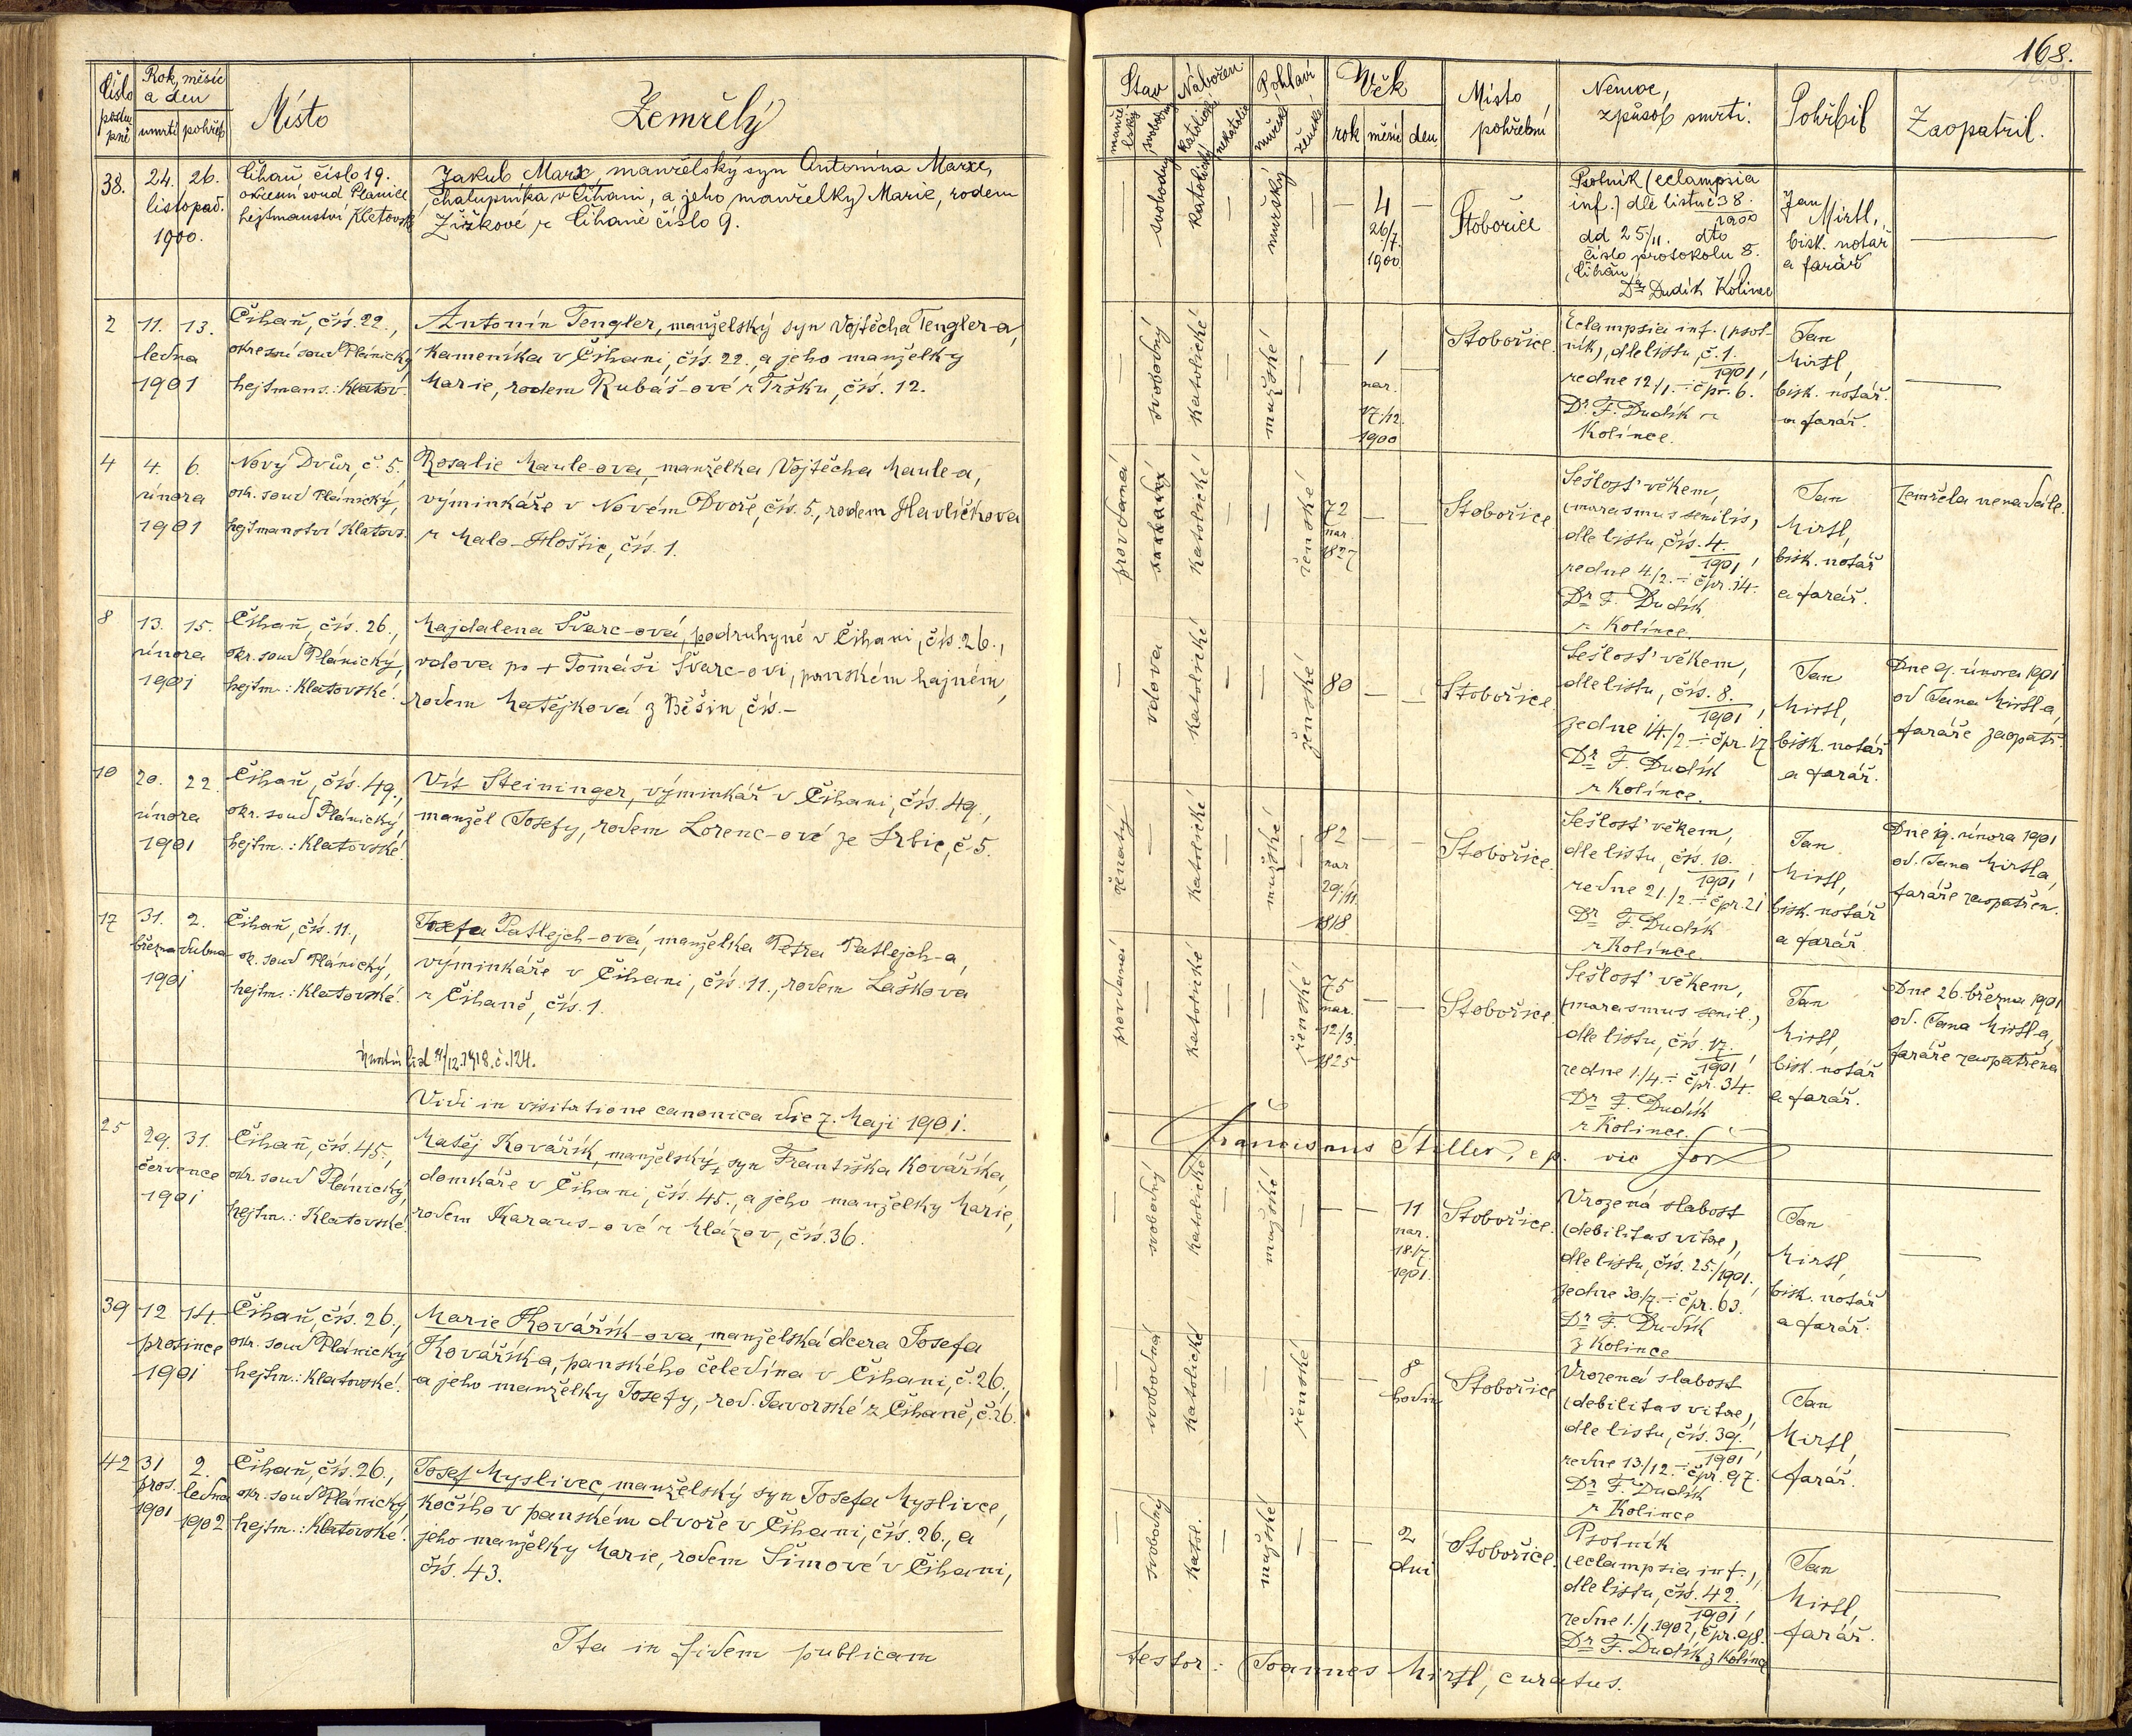 168.
Číslo postupné
Rok, měsíc a den
úmrtí pohřeb
Místo
Zemřelý
Stav
manželský svobodný
Nábožen.
katolické nekatolic.
Pohlaví
mužské ženské
Věk
rok měsíc den
Místo pohřební
Nemoc, způsob smrti.
Pohřbil
Zaopatřil.
38.
24. 26.
listopad.
1900.
Číhaň číslo 19.
okresní soud Planice
hejtmanství Klatovské
Jakub Marx, manželský syn Antonína Marxe,
chalupníka v Číhani, a jeho manželky Marie, rodem
Žižkové z Číhaně číslo 9.
svobodný
katolický
mužský
4
26/7.
1900
Stobořice
Psotník (eclampsia
inf.) dle listu č 38.
1900
dd 25./11. dto
číslo protokolu 8.
Číhaň,
Dr Dudík Kolinec
Jan
Mirtl,
bisk. notář
a farář
2
11. 13.
ledna
1901
Číhaň, čís. 22.,
okresní soud Plánický,
hejtmans.: Klatov.
Antonín Tengler, manželský syn Vojtěcha Tengler-a,
kameníka v Číhani, čís. 22., a jeho manželky
Marie, rodem Rubáš-ové z Tržku, čís. 12.
svobodný
katolické
mužské
1
nar.
17./12.
1900
Stobořice.
Eclampsia inf. (psot-
ník), dle listu, č. 1.
1901,
ze dne 12/1. – č pr. 6.
Dr. F. Dudík z
Kolince.
Jan
Mirtl,
bisk. notář.
a farář.
4
4. 6.
února
1901
Nový Dvůr, č. 5.
okr. soud Plánický,
hejtmanství Klatovs.
Rosalie Maule-ova, manželka Vojtěcha Maule-a,
výminkáře v Novém Dvoře, čís. 5., rodem Havlíčkova
z Malo-Hoštic, čís. 1.
provdaná
katolické
ženské
72
nar
1827
Stobořice
Sešlost' věkem,
(marasmus senilis,
dle listu, čís. 4.
1901,
ze dne 4/2. – č pr. 14.
Dr F. Dudík
z Kolince.
Jan
Mirtl,
bisk. notář
a farář.
Zemřela nenadále.
8
13. 15.
února
1901
Číhaň, čís. 26.,
okr. soud Plánický,
hejtm.: Klatovské.
Majdalena Švarc-ová, podruhyně v Číhani, čís. 26.,
vdova po + Tomáši Švarc-ovi, panském hajném,
rodem Matějková z Běšin, čís.–
vdova
katolické
ženské
80
Stobořice
Sešlost' věkem,
dle listu, čís. 8.
1901,
ze dne 14./2. – č pr. 17
Dr F. Dudík
z Kolince.
Jan
Mirtl,
bisk. notář
a farář.
Dne 9. února 1901
od Jana Mirtl-a,
faráře zaopatř.
10
20. 22.
února
1901
Číhaň, čís. 49.,
okr. soud Plánický,
hejtm.: Klatovské.
Vít Steininger, výminkář v Číhani, čís. 49.,
manžel Josefy, rodem Lorenc-ové ze Srbic, č 5.
ženatý
katolické
mužské
82
nar
29./11.
1818
Stobořice.
Sešlost' věkem,
dle listu, čís. 10.
1901,
ze dne 21./2. – č pr. 21
Dr F. Dudík
z Kolince
Jan
Mirtl,
bisk. notář
a farář.
Dne 19. února 1901
od. Jana Mirtla,
faráře zaopatřen.
17
31. 2.
března dubna
1901
Číhaň, čís. 11.,
ok. soud Plánický,
hejtm.: Klatovské.
Josefa Patlejch-ová, manželka Petra Patlejch-a,
výminkáře v Číhani, čís. 11., rodem Laškova
z Číhaně, čís. 1.
Úmrtní list 4/12.1918. č. 124.
provdaná
katolické
ženské
75
nar.
12./3.
1825
Stobořice.
Sešlost' věkem,
(marasmus senil.)
dle listu, čís. 17.
1901,
ze dne 1./4. – č pr. 34.
Dr F. Dudík
z Kolince.
Jan
Mirtl,
bisk. notář
a farář.
Dne 26. března 1901
od. Jana Mirtl-a,
faráře zaopatřena
Vidi in visitatione canonica die 7. Maji 1901.
Franciscus Stiller, e p. vic for
25
29. 31.
července
1901
Číhaň, čís. 45.,
okr. soud Plánický,
hejtm.: Klatovské.
Matěj Kovářík, manželský syn Františka Kováříka,
domkáře v Číhani, čís. 45., a jeho manželky Marie,
rodem Karaus-ové z Mlázov, čís. 36.
svobodný
katolické
mužské
11
nar.
18./7.
1901.
Stobořice.
Vrozená slabost
(debilitas vitae),
dle listu, čís. 25./1901.,
ze dne 30./7. – č pr. 63.
Dr F. Dudík
z Kolince
Jan
Mirtl,
bisk. notář
a farář.
39
12 14.
prosince
1901
Číhaň, čís. 26.,
okr. soud Plánický
hejtm.: Klatovské.
Marie Kovářík-ova, manželská dcera Josefa
Kovářík-a, panského čeledína v Číhani, č. 26.,
a jeho manželky Josefy, rod. Javorské z Číhaně, č. 26.
svobodná
katolické
ženské
8
hodin
Stobořice
Vrozená slabost
(debilitas vitae),
dle listu, čís. 39.
1901,
ze dne 13./12. – č pr. 97.
Dr F. Dudík
z Kolince
Jan
Mirtl,
farář.
42
31 2.
pros. ledna
1901 1902
Číhaň, čís. 26.,
okr. soud Plánický,
hejtm.: Klatovské.
Josef Myslivec, manželský syn Josefa Myslivce,
kočího v panském dvoře v Číhani, čís. 26., a
jeho manželky Marie, rodem Šimové v Číhani,
čís. 43.
svobodný
katol.
mužské
2
dni
Stobořice.
Psotník
(eclampsia inf.),
dle listu, čís. 42.
1901,
ze dne 1./1. 1902, č pr. 98.
Dr F. Dudík z Kolince
Jan
Mirtl,
farář.
Ita in fidem publicam
testor: Joannes Mirtl, curatus.